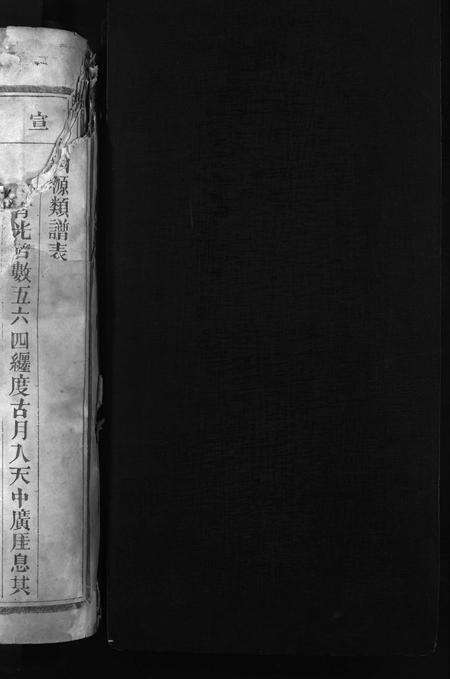 宣
源類譜表
數五六四纏度古月入天中廣厓息其